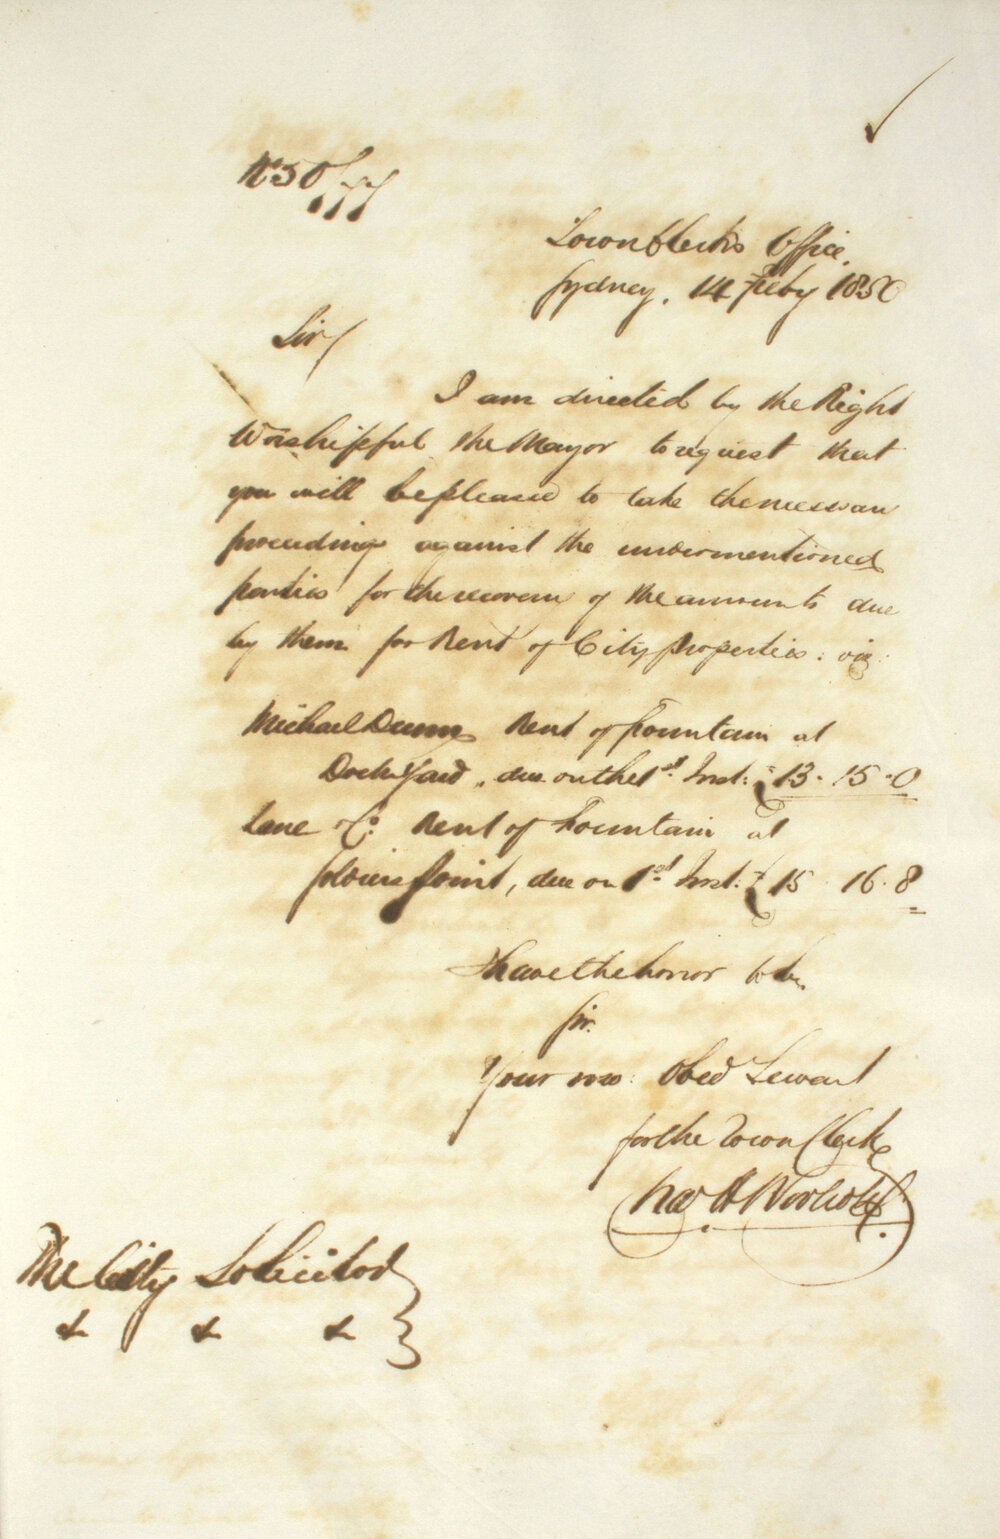 No 50/77
Town Clerks Office,
Sydney, 14 Feby 1850
Sir/
I am directed by the Right
Worshipful the Mayor to request that
you will be pleased to take the necessary
proceedings against the undermentioned
parties for the recovery of the amounts due
by them for Rent of City properties: viz
Michael Dunn Rent of Fountain at
Dock Yard, due on the 1st Inst: £13. 15. 0
Lane & Co: Rent of Fountain at
Soldiers Point, due on 1st Inst. £15 16. 8
I have the honor to be,
Sir.
Your mo: Obed Servant
for the Town Clerk
Chas H Woolcott
The City Solicitor
& & &